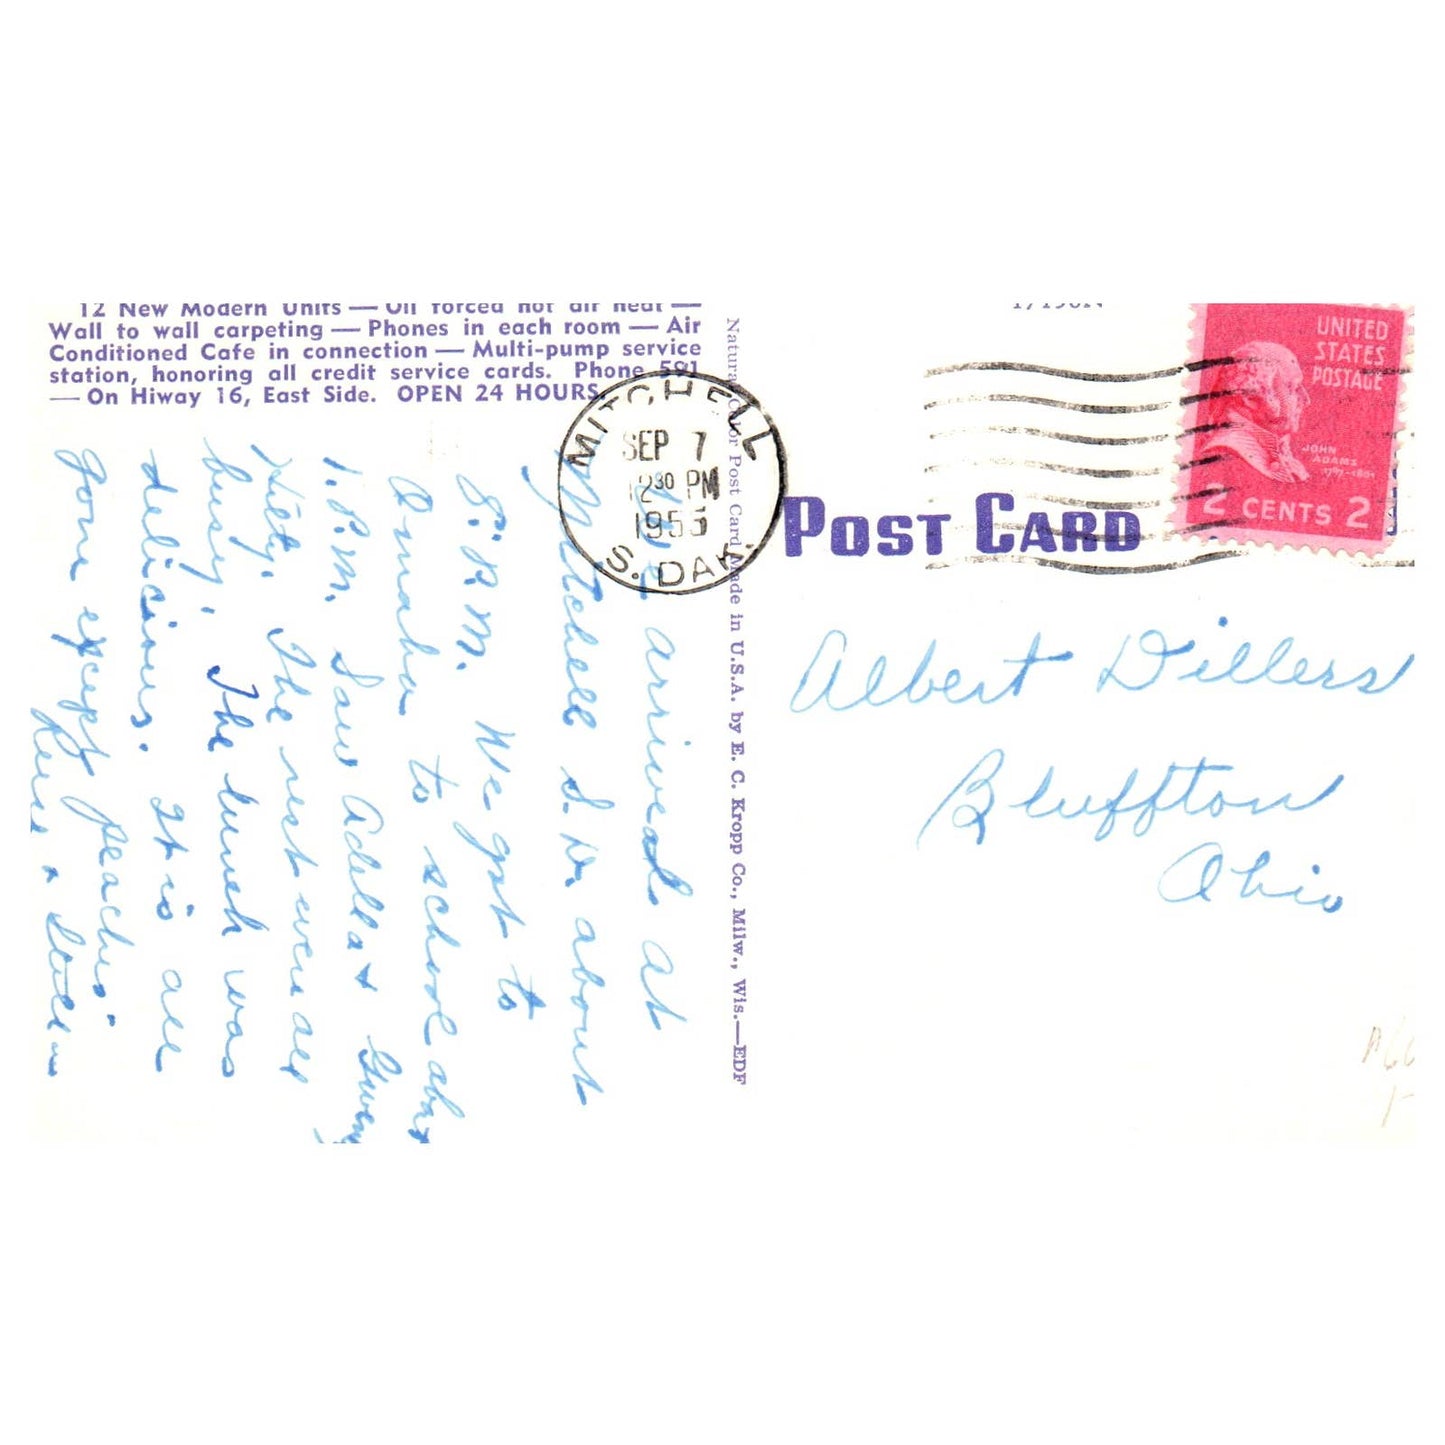 12 New Modern Units — Oil forced hot air heat —
Wall to wall carpeting — Phones in each room — Air
Conditioned Cafe in connection — Multi-pump service
station, honoring all credit service cards. Phone 591
— On Hiway 16, East Side. OPEN 24 HOURS.
arrived at
Mitchell S.D. about
5. P.M. We got to
Omaha to school abt
1. P.M. Saw Adella + Gwen
Hilty. The rest were all
busy. The lunch was
delicious. It is all
gone except peaches.
MITCHELL
SEP 7
12 30 PM
1953
S. DAK.
Natural Color Post Card Made in U.S.A. by E. C. Kropp Co., Milw., Wis.—EDF
POST CARD
UNITED
STATES
POSTAGE
JOHN
ADAMS
1797-1801
2 CENTS 2
Albert Dillers
Bluffton
Ohio